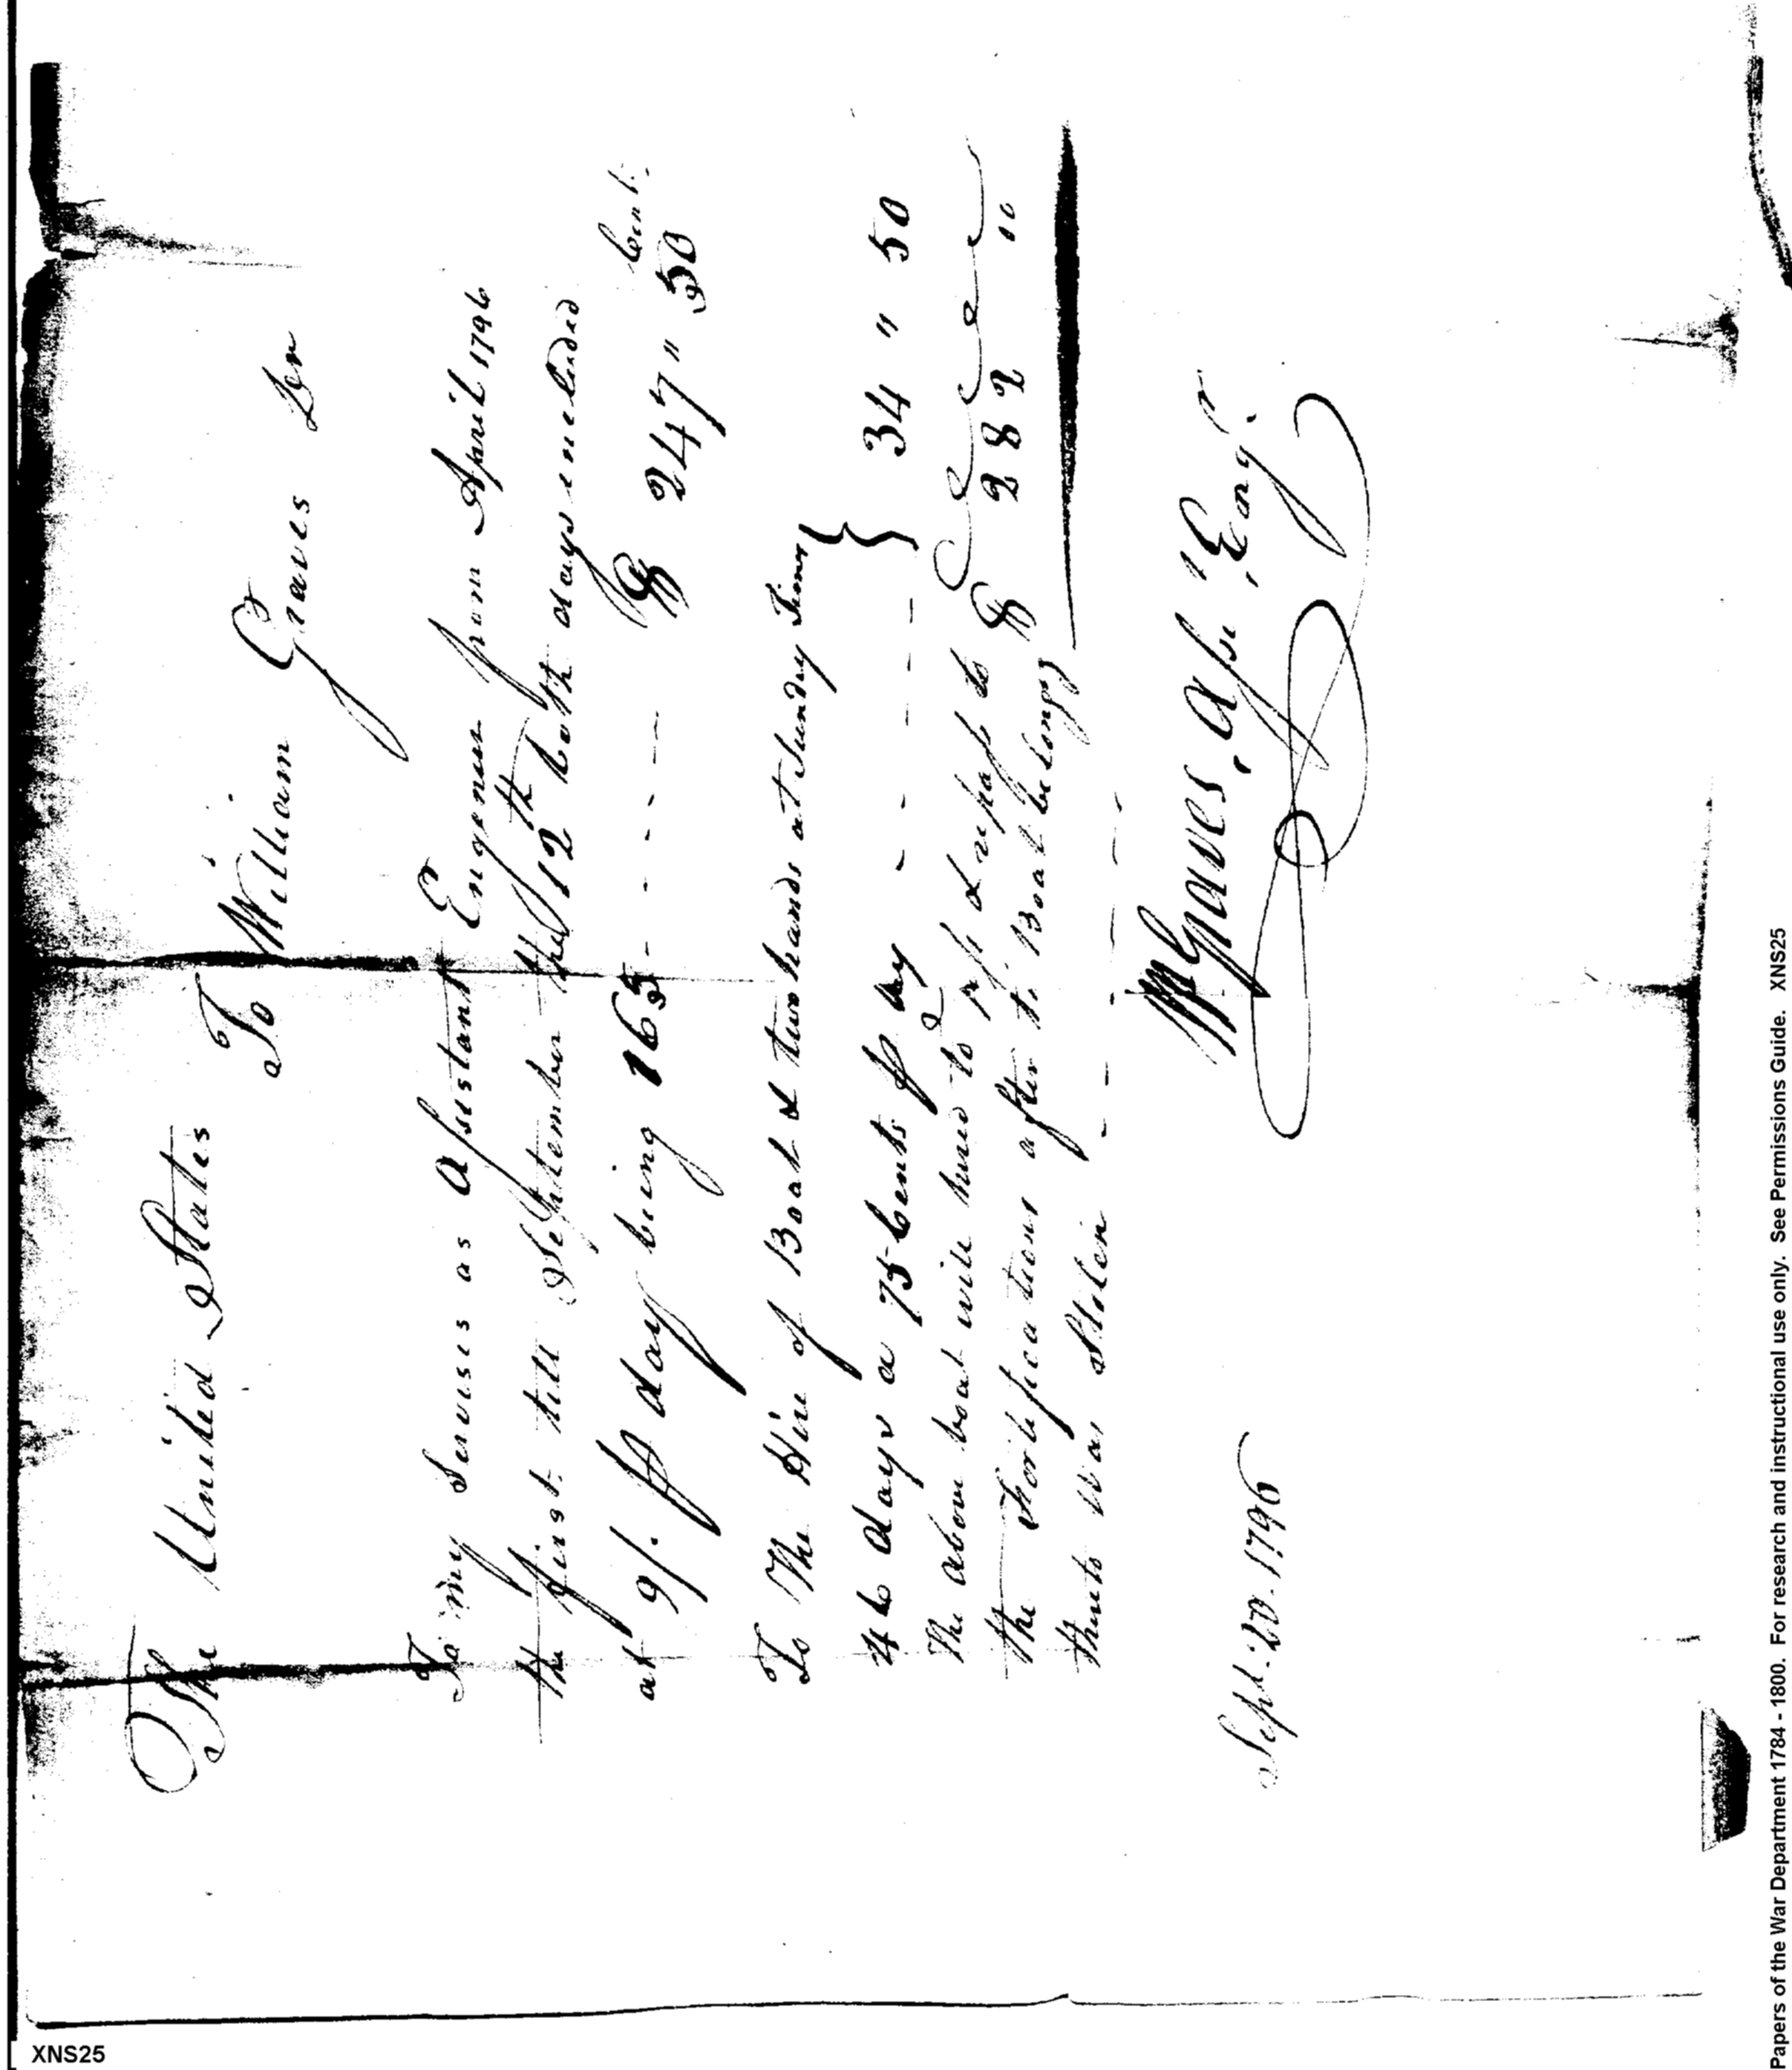 The United States
To William Graves Dr
To my Servises as Assistant Engenur from April 1796
the first till September the 12th both days included
Cents
at 9/. ⅌ day being 165 - - - - - $ 247 " 50
To The Hire of Boat & two hands at Sundry Times }
46 days a 75 Cents ⅌ day - - - - - } 34 " 50
The above boat wile hired to & repass to $ 282 "
the Fortifications after the Boat belongg
thereto was Stolen - - - - -
Sept: 20. 1796
Wm Graves, Asst. Eng.
XNS25
Papers of the War Department 1784 - 1800. For research and instructional use only. See Permissions Guide. XNS25